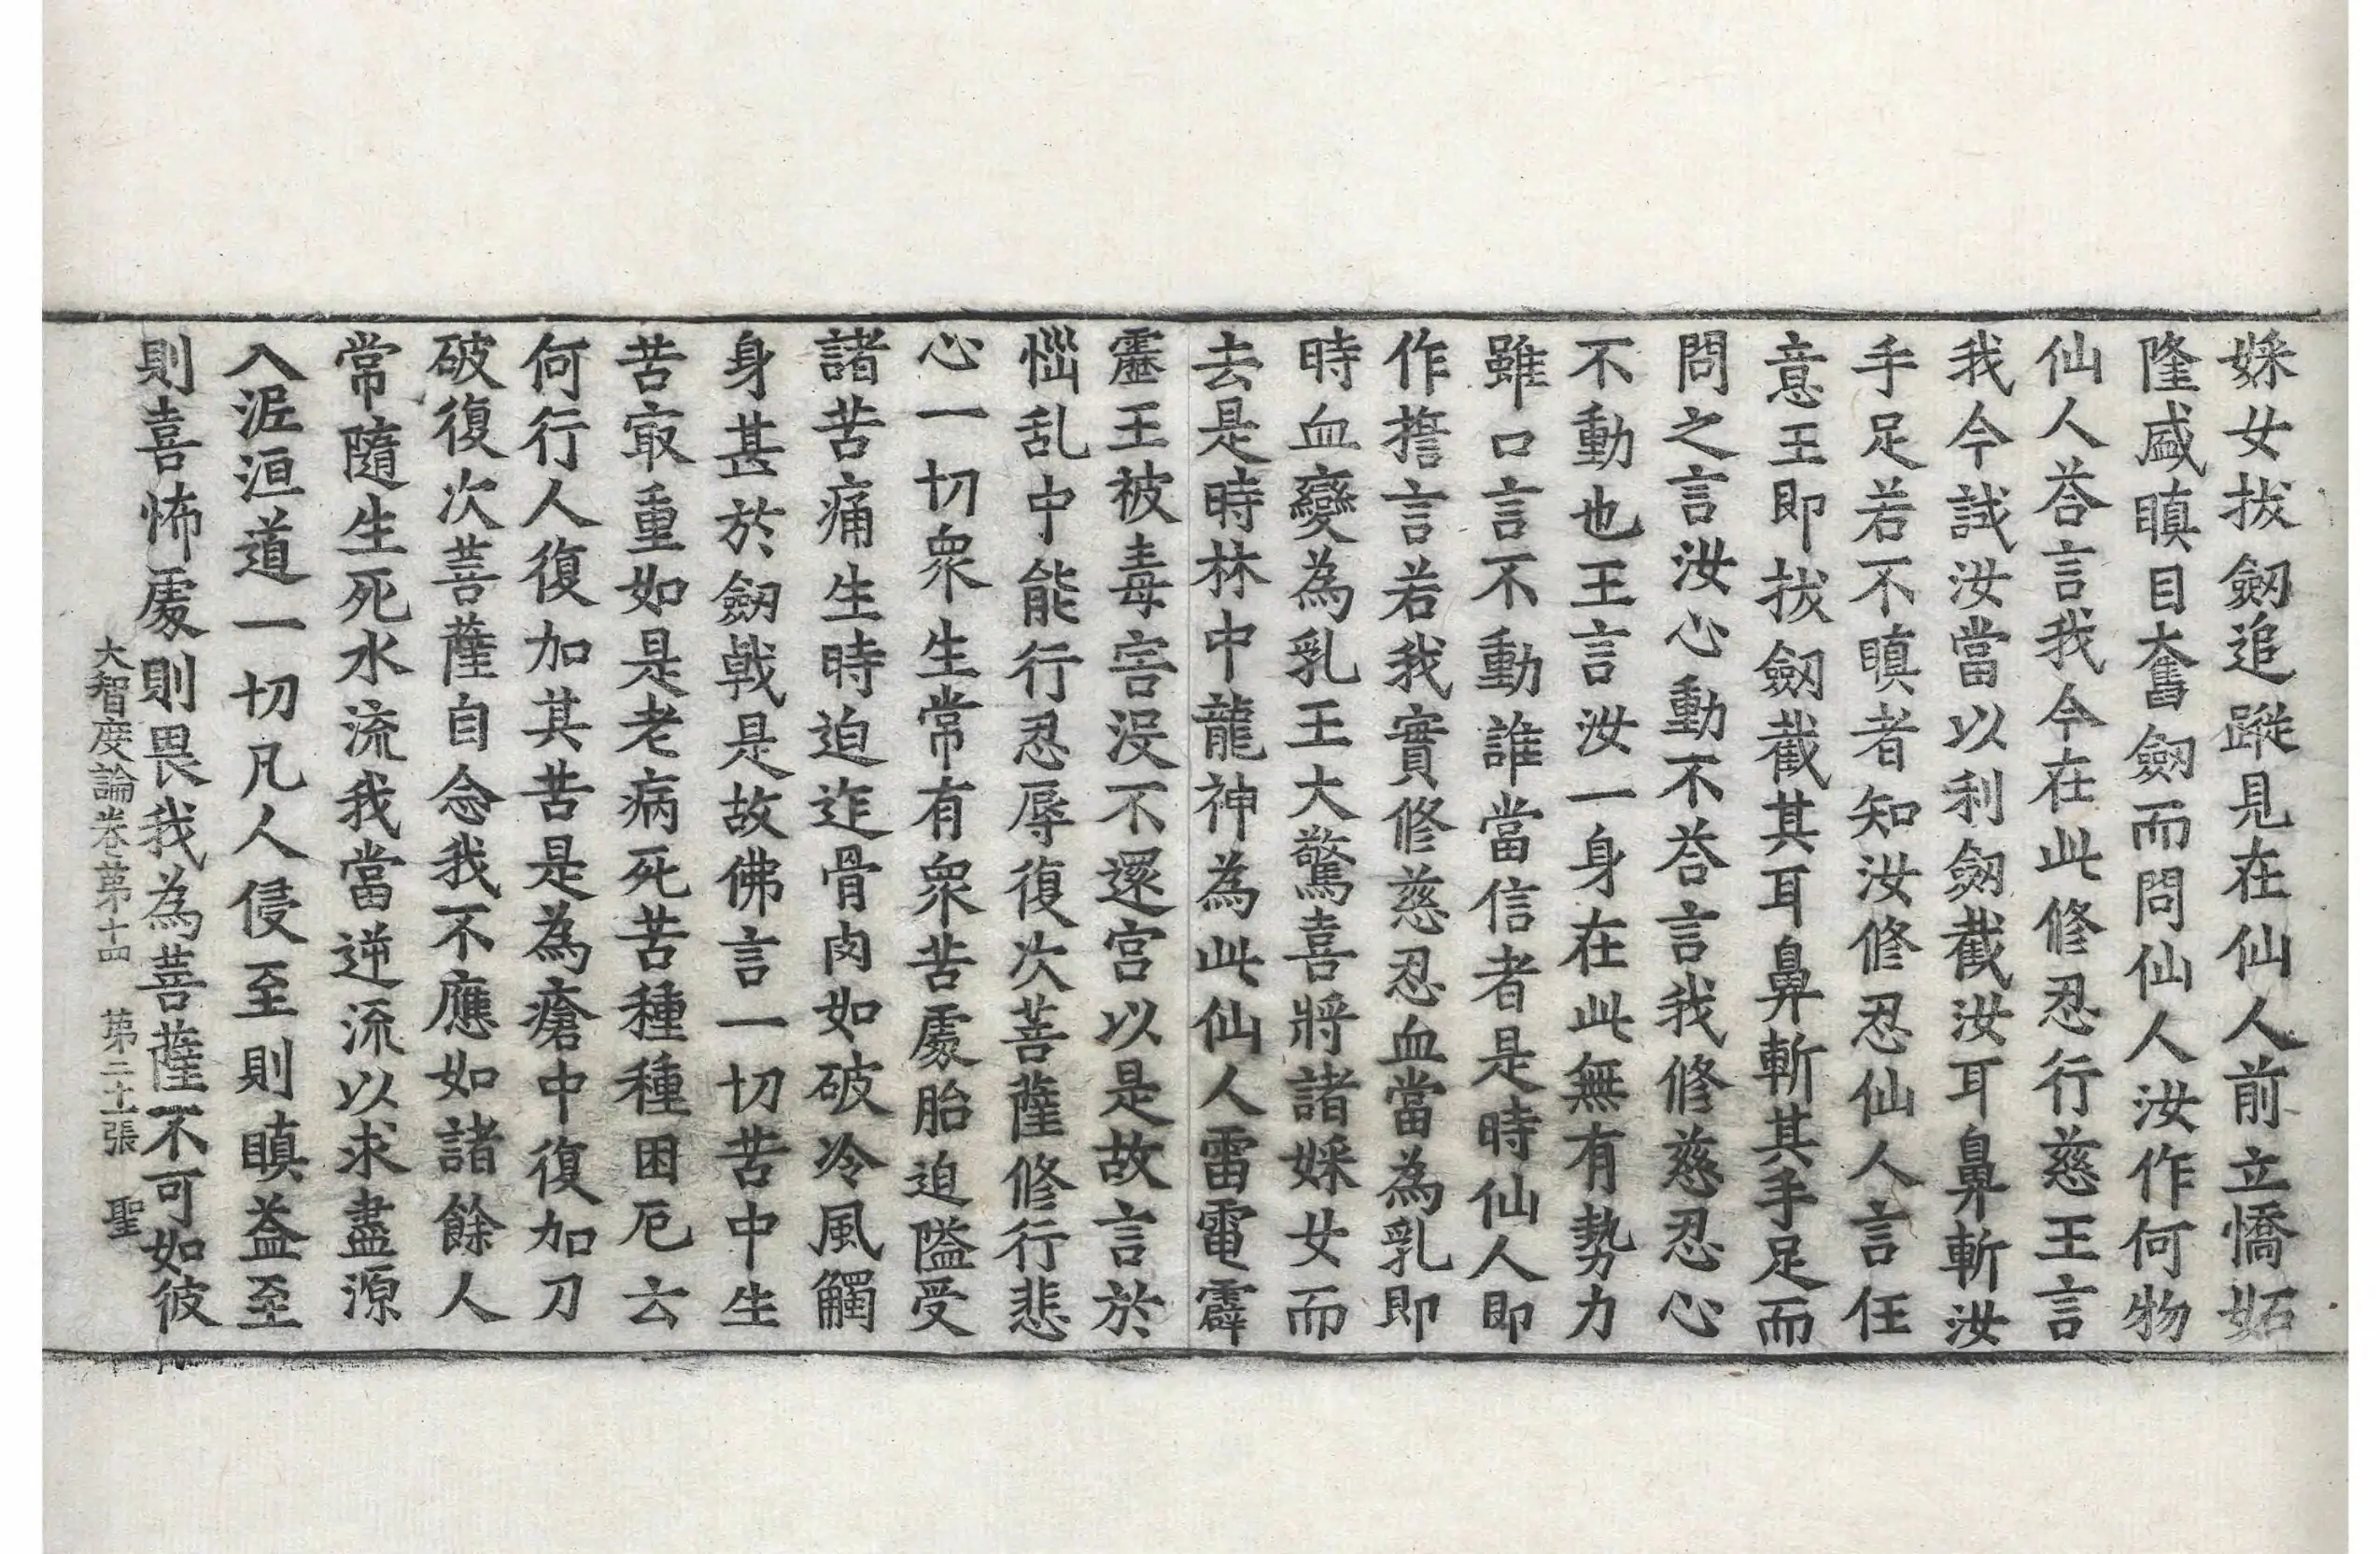 婇女拔劒追蹤見在仙人前立憍妬
隆盛瞋目奮劒而問仙人汝作何物
仙人荅言我今在此修忍行慈王言
我今試汝當以利劒截汝耳鼻斬汝
手足若不瞋者知汝修忍仙人言任
意王即拔劒截其耳鼻斬其手足而
問之言汝心動不荅言我修慈忍心
不動也王言汝一身在此無有勢力
雖口言不動誰當信者是時仙人即
作擔言若我實修慈忍血當為乳即
時血變為乳王大驚喜將諸婇女而
去是時林中龍神為此仙人雷電霹
靂王被毒害没不還宫以是故言於
惱乱中能行忍辱復次菩薩修行悲
心一切衆生常有衆苦處胎迫隘受
諸苦痛生時迫迮骨肉如破冷風觸
身甚於劒戟是故佛言一切苦中生
苦冣重如是老病死苦種種困厄云
何行人復加其苦是為瘡中復加刀
破復次菩薩自念我不應如諸餘人
常隨生死水流我當逆流以求盡源
入泥洹道一切凡人侵至則瞋益至
則喜怖處則畏我為菩薩不可如彼
大智度論卷苐十四 苐二十張 聖